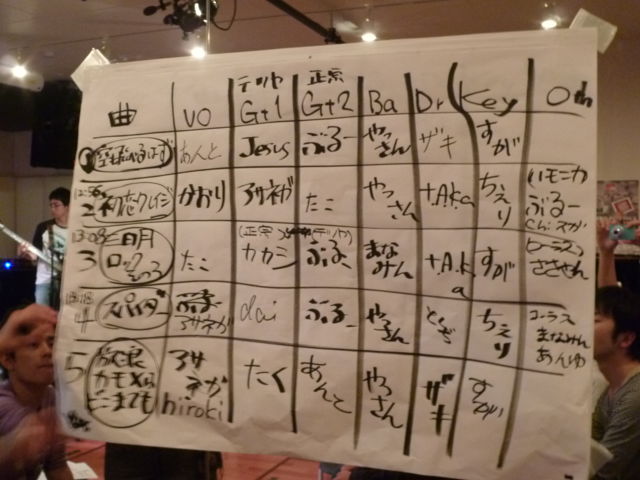 テツヤ 正宗
曲 VO Gt1 Gt2 Ba Dr Key Oth
1 空も飛べるはず あんと Jesus ぶるー やっさん ザキ すが
12:56
2 初恋クレイジー かおり アサネガ たこ やっさん t.Aka ちえり ハモニカ ぶるー
13:08 (正宗
3 日月 ロック たこ カカシ ぶるー まなみん t.Aka すが (コーラス) ささやん
4 スパイダー ぶるー アサネガ dai ぶるー やっさん ちえり コーラス まなみん あんゆ
5 放浪 カモメは どこまでも アサネガ hiroki たく あんと やっさん ザキ すが